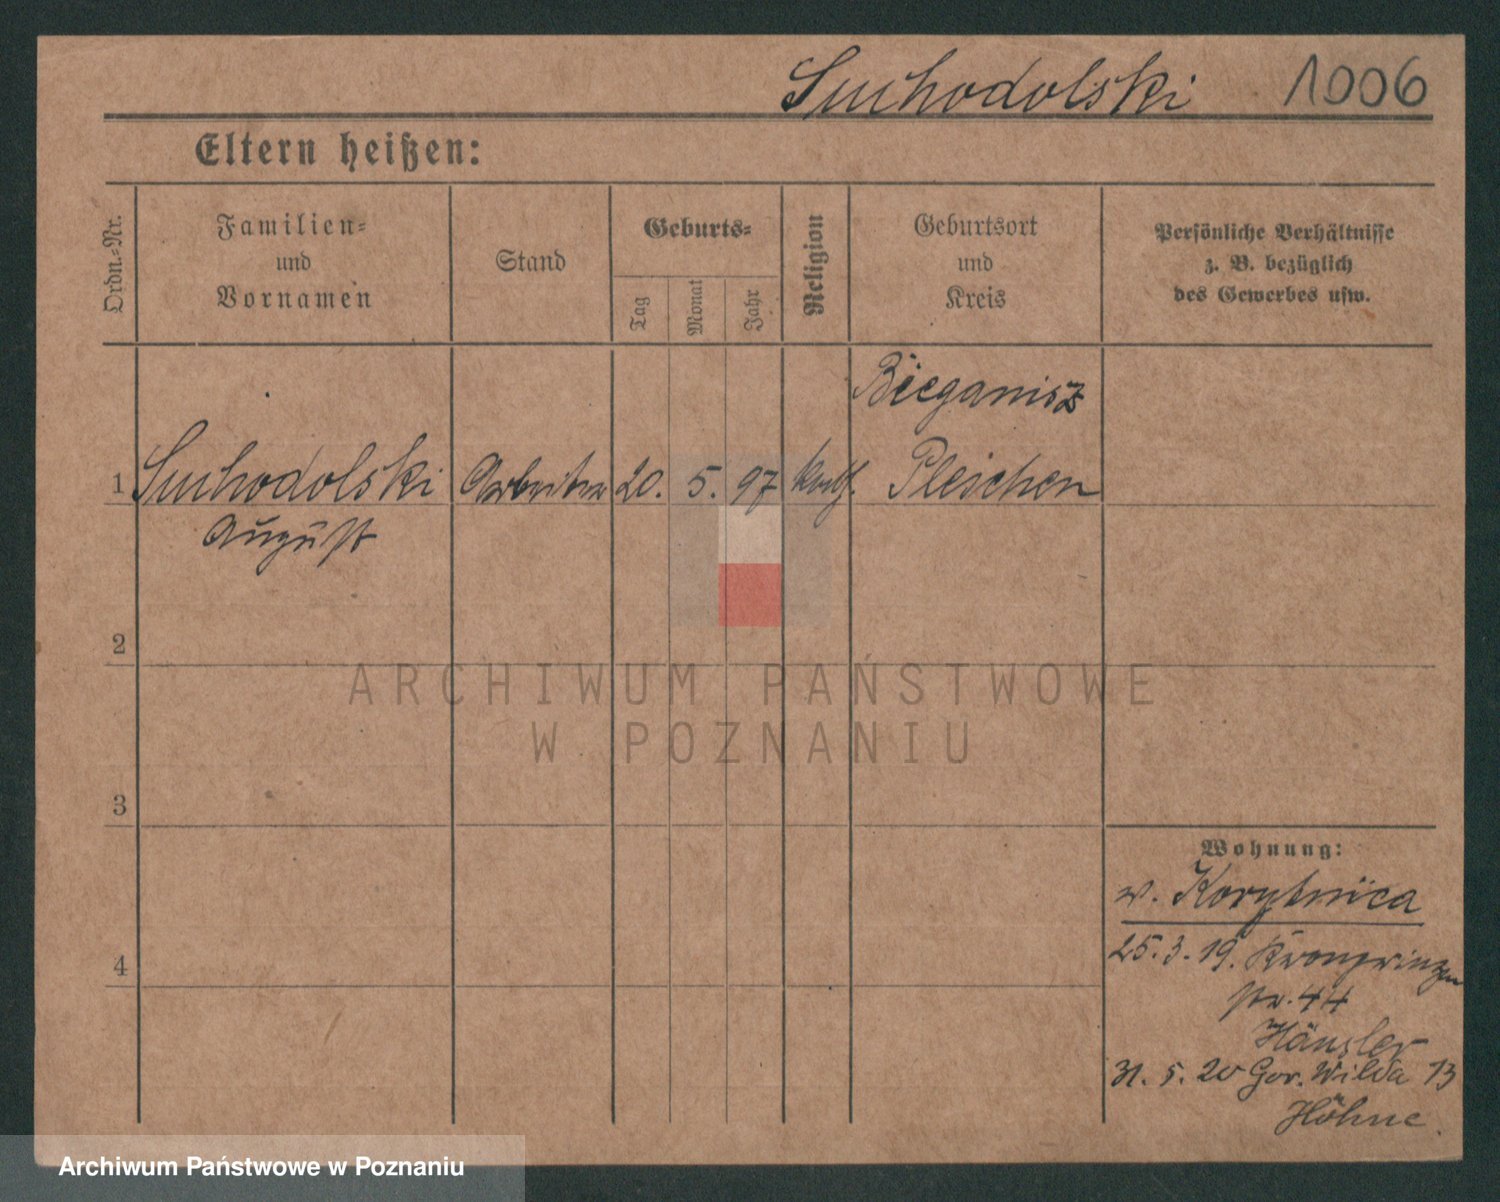 Suchodolski 1006
Eltern heißen:
Ordn.-Nr.
Familien-
und
Vornamen
Stand
Geburts-
Tag
Monat
Jahr
Religion
Geburtsort
und
Kreis
Persönliche Verhältnisse
z. B. bezüglich
des Gewerbes usw.
Bieganisz
1 Suchodolski Arbeiter 20. 5. 97 kath. Pleschen
August
2
ARCHIWUM PAŃSTWOWE
W POZNANIU
3
Wohnung:
v. Korytnica
25.3.19. Kronprinzen
str. 44
4
Hänsler
31. 5. 20 Gor. Wilda 13
Höhne.
Archiwum Państwowe w Poznaniu